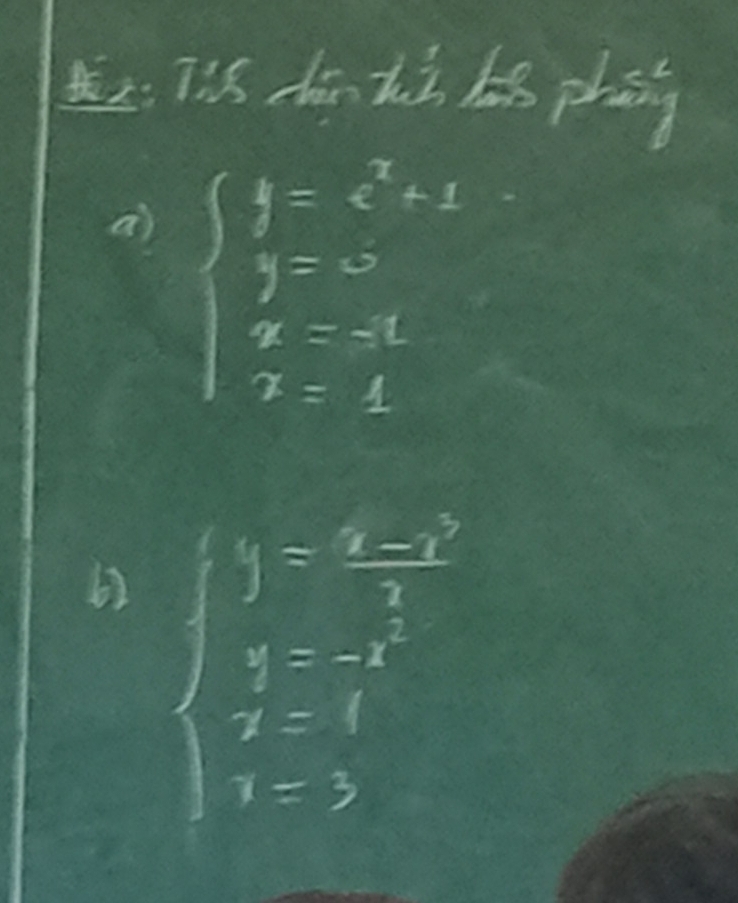 Bài 2: Tính diện tích hình phẳng
a) { y = e^x + 1
y = 0
x = -1
x = 1
b) { y = (x - x^3)/x
y = -x^2
x = 1
x = 3